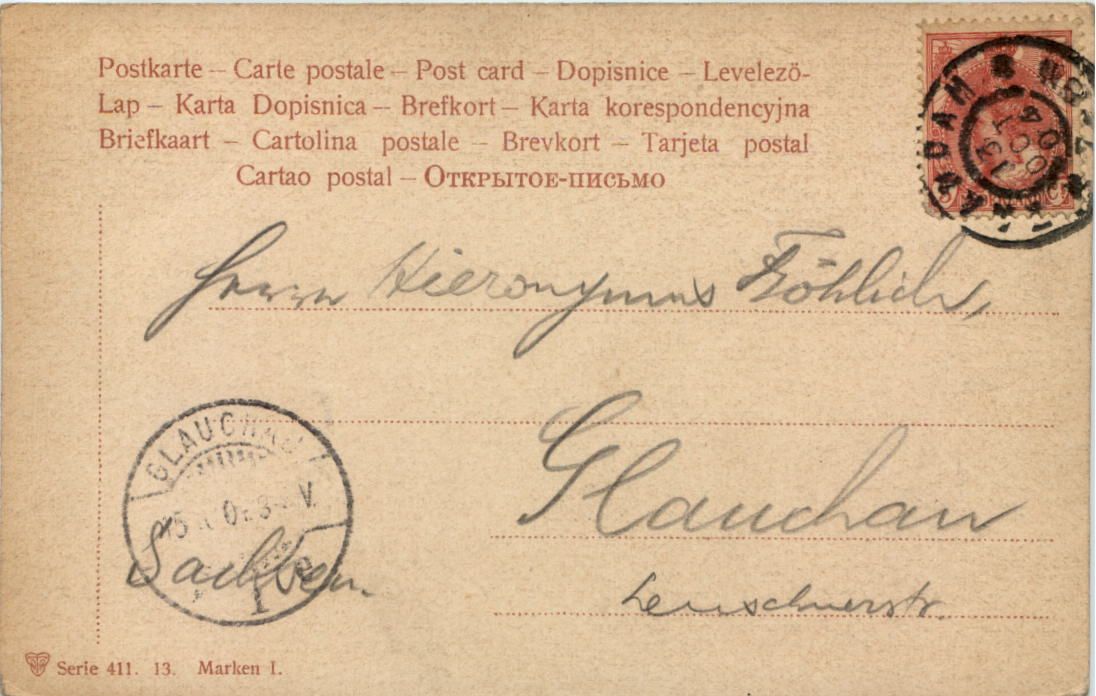 Postkarte – Carte postale – Post card – Dopisnice – Levelezö-
Lap – Karta Dopisnica – Brefkort – Karta korespondencyjna
Briefkaart – Cartolina postale – Brevkort – Tarjeta postal
Cartao postal – Открытое-письмо
Herrn Hieronymus Fröhlich,
GLAUCHAU
Glauchau
Sachsen.
Leuschnerstr.
Serie 411. 13. Marken I.